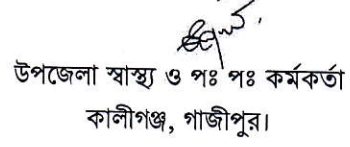 উপজেলা স্বাস্থ্য ও পঃ পঃ কর্মকর্তা
কালীগঞ্জ, গাজীপুর।